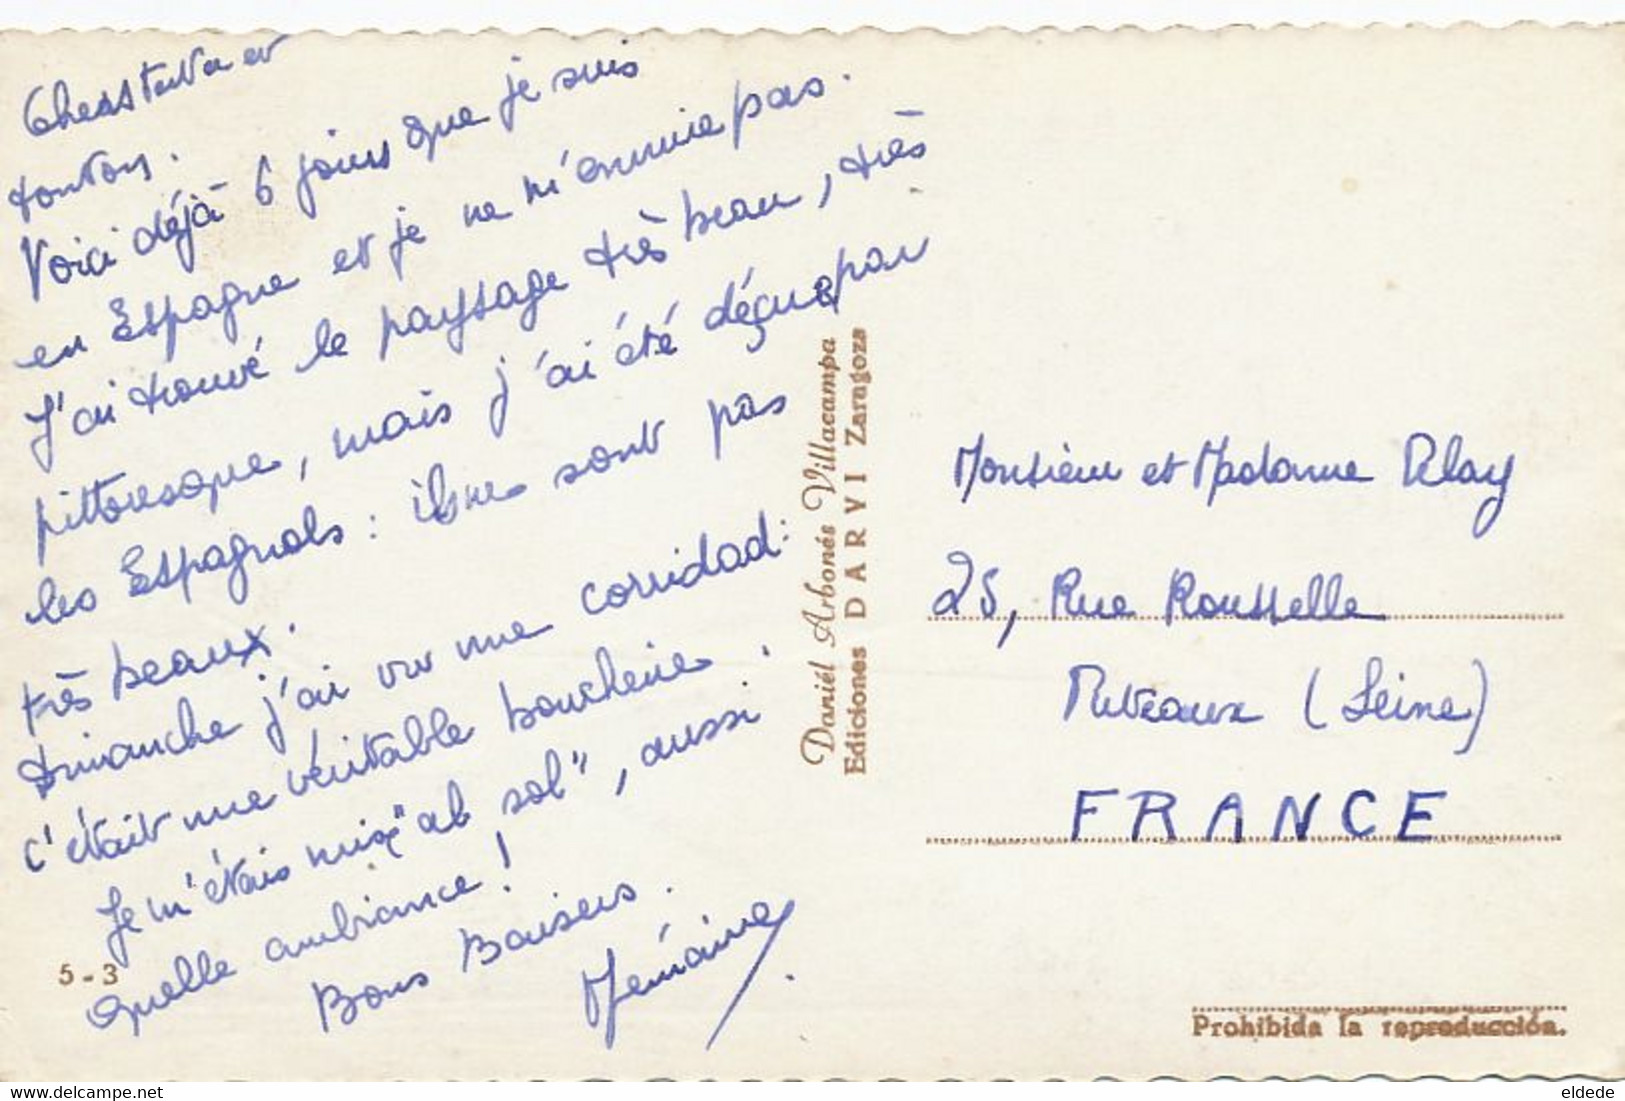 Chers tata et
tonton.
Voici déjà 6 jours que je suis
en Espagne et je ne m'ennuie pas.
J'ai trouvé le paysage très beau, très
pittoresque, mais j'ai été déçue par
les Espagnols : ils ne sont pas
très beaux.
Dimanche j'ai vu une corridad :
c'était une véritable boucherie.
Je m'étais mise "al sol", aussi
quelle ambiance !
Bons Baisers.
5-3
Daniél Arbonés Villacampa
Ediciones DARVI Zaragoza
Monsieur et Madame
25, Rue Rousselle
Puteaux (Seine)
FRANCE
Prohibida la reproducción.
eldede